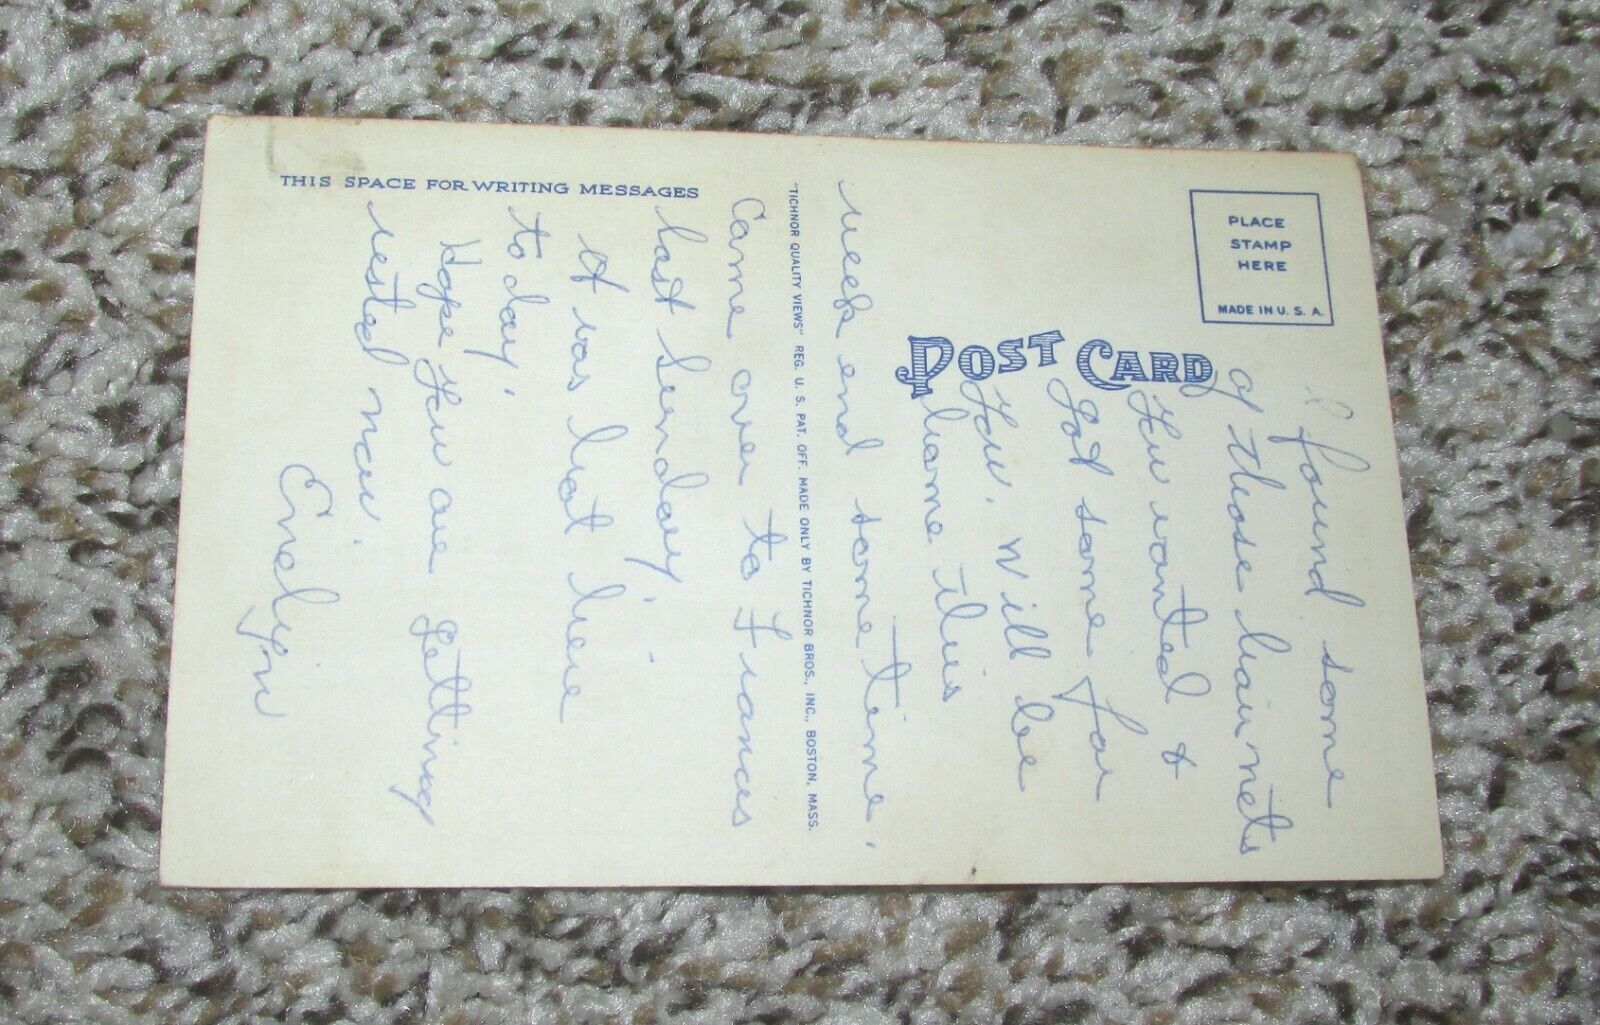 THIS SPACE FOR WRITING MESSAGES
"TICHNOR QUALITY VIEWS" REG. U. S. PAT. OFF. MADE ONLY BY TICHNOR BROS., INC., BOSTON, MASS.
POST CARD
PLACE
STAMP
HERE
MADE IN U. S. A.
I found some
of those hair nets
you wanted &
got some for
you. Will be
home this
week end some time.
Came over to Frances
last Sunday.
It was hot here
today.
Hope you are getting
rested now.
Evelyn